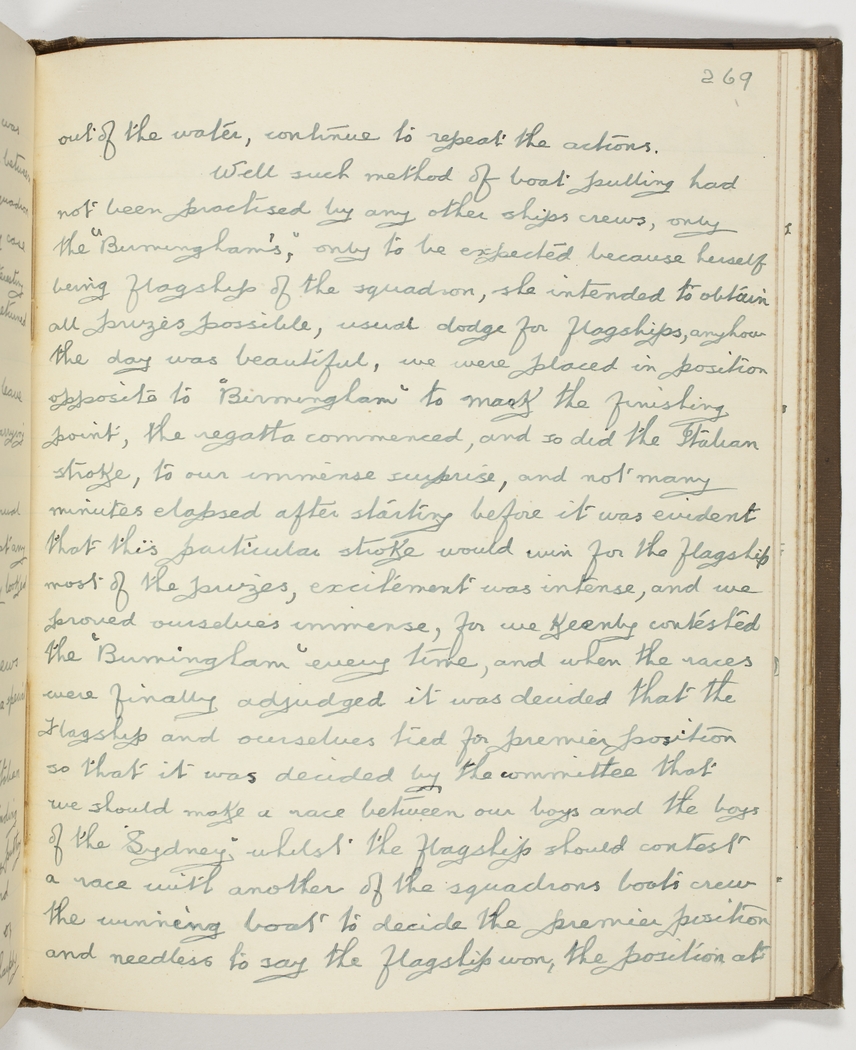 269
out of the water, continue to repeat the actions.
Well such method of boat pulling had
not been practised by any other ships crews, only
the "Birmingham's," only to be expected because herself
being flagship of the squadron, she intended to obtain
all prizes possible, usual dodge for flagships, anyhow
the day was beautiful, we were placed in position
opposite to "Birmingham" to mark the finishing
point, the regatta commenced, and so did the Italian
stroke, to our immense surprise, and not many
minutes elapsed after starting before it was evident
that this particular stroke would win for the flagship
most of the prizes, excitement was intense, and we
proved ourselves immense, for we keenly contested
the "Birmingham" every time, and when the races
were finally adjudged it was decided that the
Flagship and ourselves tied for premier position
so that it was decided by the committee that
we should make a race between our boys and the boys
of the "Sydney" whilst the flagship should contest
a race with another of the squadrons boats crew
the winning boat to decide the premier position
and needless to say the flagship won, the position at